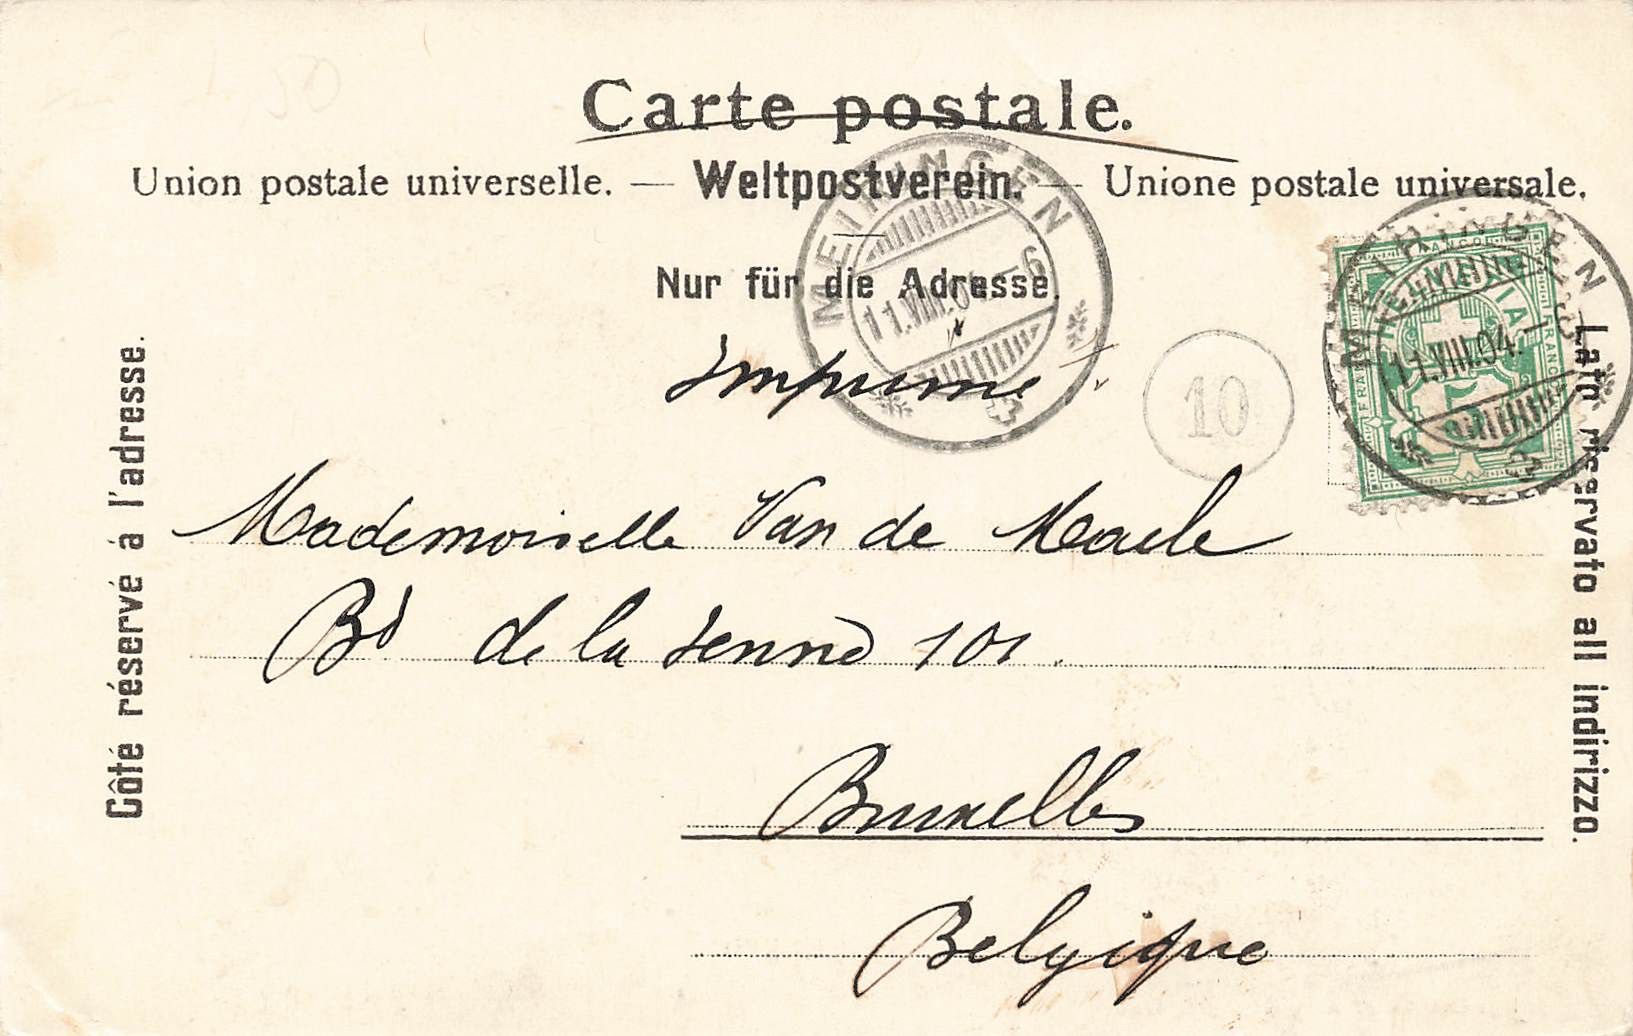 Carte postale.
Union postale universelle. — Weltpostverein. — Unione postale universale.
Nur für die Adresse.
MEIRINGEN
11.VIII.04.-6
MEIRINGEN
11.VIII.04.
HELVETIA
FRANCO
FRANCO
FRANCO
5
10
Imprimé
Mademoiselle Van de
Bd de la Senne 101.
Bruxelles
Belgique
Côté réservé à l'adresse.
Lato riservato all indirizzo.